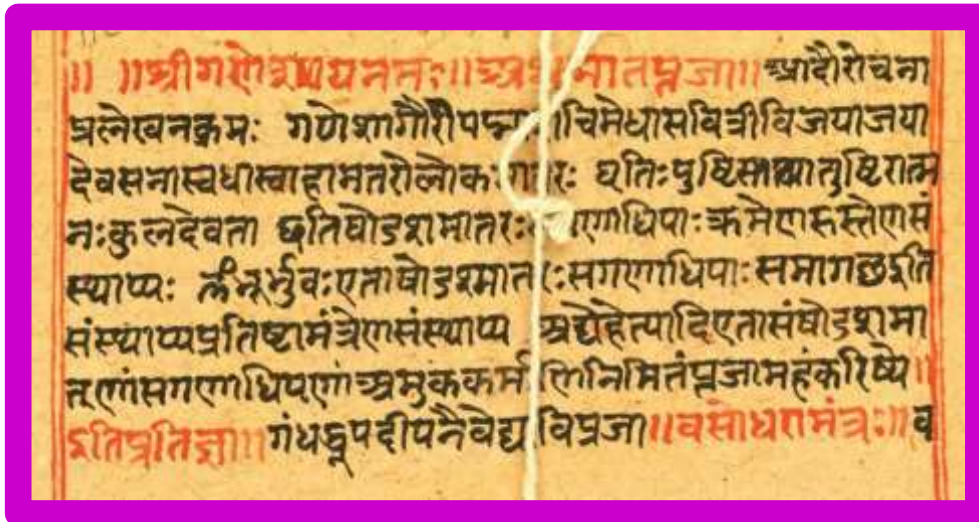 ॥ ॥श्रीगणेशायनमः॥अथ मातृपूजा॥ आदौरोचना
प्रलेखनक्रमः गणेशागौरीपद्मा चिमेधासवित्रीविजयाजया
देवसेनास्वधास्वाहामातरोलोकमातरः धृतिःपुष्टिस्तथातुष्टिरात्म
नःकुलदेवता इतिषोडशमातरः गणाधिपाःक्रमेण सं
स्थाप्यः भूर्भुवःएताषोडशमातरःसगणाधिपाःसमागछइति
संस्थाप्यप्रतिष्टामंत्रेणसंस्थाप्य अद्येहेत्यादिएतासंषोडशमा
तृणांसगणाधिपाणांअमुककर्माणिनिमितंपूजामहंकरिष्ये॥
इतिप्रतिज्ञा॥गंधद्धूपदीपनैवेद्य विपूजा॥वसोधरामंत्रः॥व